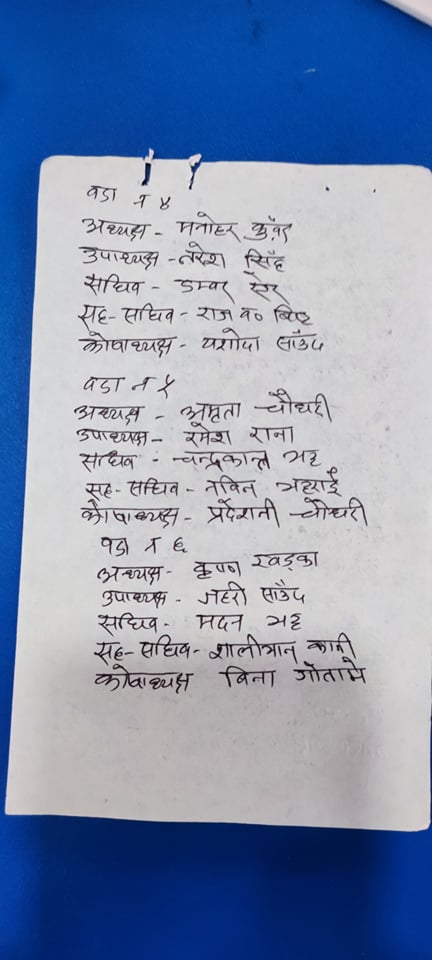 वडा न ४
अध्यक्ष - मनोहर कुँवर
उपाध्यक्ष - नरेश सिँह
सचिव - डम्वर
सह- सचिव - राज व० विष्ट
कोषाध्यक्ष - यशोदा साँउद
वडा न ५
अध्यक्ष - अमृता चौधरी
उपाध्यक्ष - रमेश राना
सचिव - चन्द्रकान्त भट्ट
सह- सचिव - नविन भट्टराई
कोषाध्यक्ष - प्रदेशनी चौधरी
वडा न ६
अध्यक्ष - कृष्ण खड्का
उपाध्यक्ष - नहरी साउँद
सचिव - मदन भट्ट
सह- सचिव - शालीग्राम कामी
कोषाध्यक्ष विना गौतामे